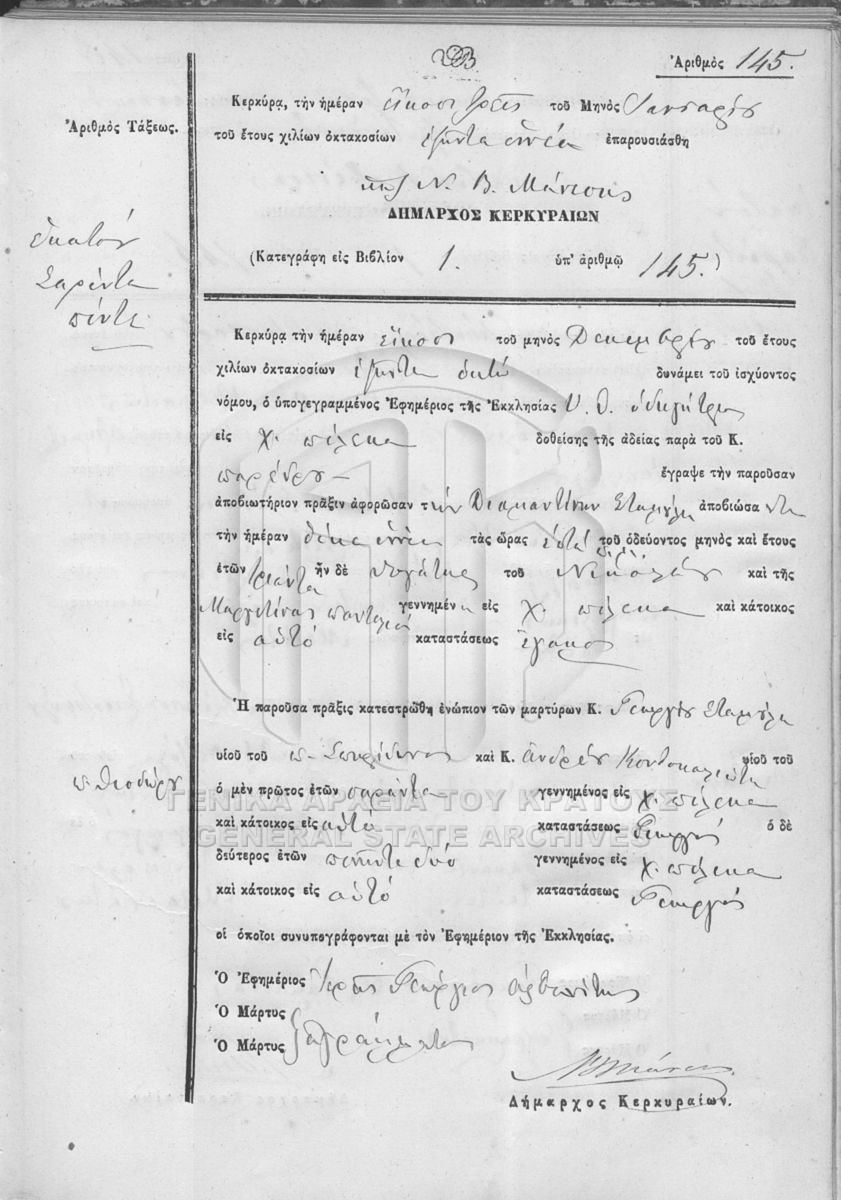 Ἀριθμὸς 145.
Κερκύρα, τὴν ἡμέραν εἴκοσι τρεῖς τοῦ Μηνὸς Ἰανουαρίου
Ἀριθμὸς Τάξεως.
τοῦ ἔτους χιλίων ὀκτακοσίων ἑξῆντα ἐννέα ἐπαρουσιάσθη
Ν. Β. Μάνεσης
ΔΗΜΑΡΧΟΣ ΚΕΡΚΥΡΑΙΩΝ
ἑκατόν
Σαράντα
πέντε
(Κατεγράφη εἰς Βιβλίον 1. ὑπ' ἀριθμῷ 145.)
Κερκύρα τὴν ἡμέραν εἴκοσι τοῦ μηνὸς Δεκεμβρίου τοῦ ἔτους
χιλίων ὀκτακοσίων ἑξῆντα ὀκτώ δυνάμει τοῦ ἰσχύοντος
νόμου, ὁ ὑπογεγραμμένος Ἐφημέριος τῆς Ἐκκλησίας Υ. Θ. ὁδηγήτρια
εἰς χ. πέλεκα δοθείσης τῆς ἀδείας παρὰ τοῦ Κ.
παρέδρου – ἔγραψε τὴν παροῦσαν
ἀποβιωτήριον πρᾶξιν ἀφορῶσαν τήν Διαμαντίναν Σταμούλη ἀποβιώσα
τὴν ἡμέραν δέκα ἐννέα τὰς ὥρας ἑπτά τοῦ ὁδεύοντος μηνὸς καὶ ἔτους
ἐτῶν τριάντα ἦν δὲ θυγάτηρ τοῦ Νικολάου καὶ τῆς
Μαργετίνας γεννημένη εἰς χ. πέλεκα καὶ κάτοικος
εἰς αὐτό καταστάσεως ἔγαμος
Ἡ παροῦσα πρᾶξις κατεστρώθη ἐνώπιον τῶν μαρτύρων Κ. Γεωργίου Σταμούλη
υἱοῦ τοῦ π. Σπυρίδωνος καὶ Κ. ἀνδρέου Κοντοκαλιώτη υἱοῦ τοῦ
π. Θεοδώρου
ὁ μὲν πρῶτος ἐτῶν σαράντα γεννημένος εἰς χ. πέλεκα
ΓΕΝΙΚΑ ΑΡΧΕΙΑ ΤΟΥ ΚΡΑΤΟΥΣ
καὶ κάτοικος εἰς αὐτό καταστάσεως Γεωργός ὁ δὲ
GENERAL STATE ARCHIVES
δεύτερος ἐτῶν πενῆντα δύο γεννημένος εἰς χ. πέλεκα
καὶ κάτοικος εἰς αὐτό καταστάσεως Γεωργός
οἱ ὁποῖοι συνυπογράφονται μὲ τὸν Ἐφημέριον τῆς Ἐκκλησίας.
Ὁ Ἐφημέριος Ἱερεὺς Γεώργιος
Ὁ Μάρτυς
Ὁ Μάρτυς ἀγράμματοι
Δήμαρχος Κερκυραίων.